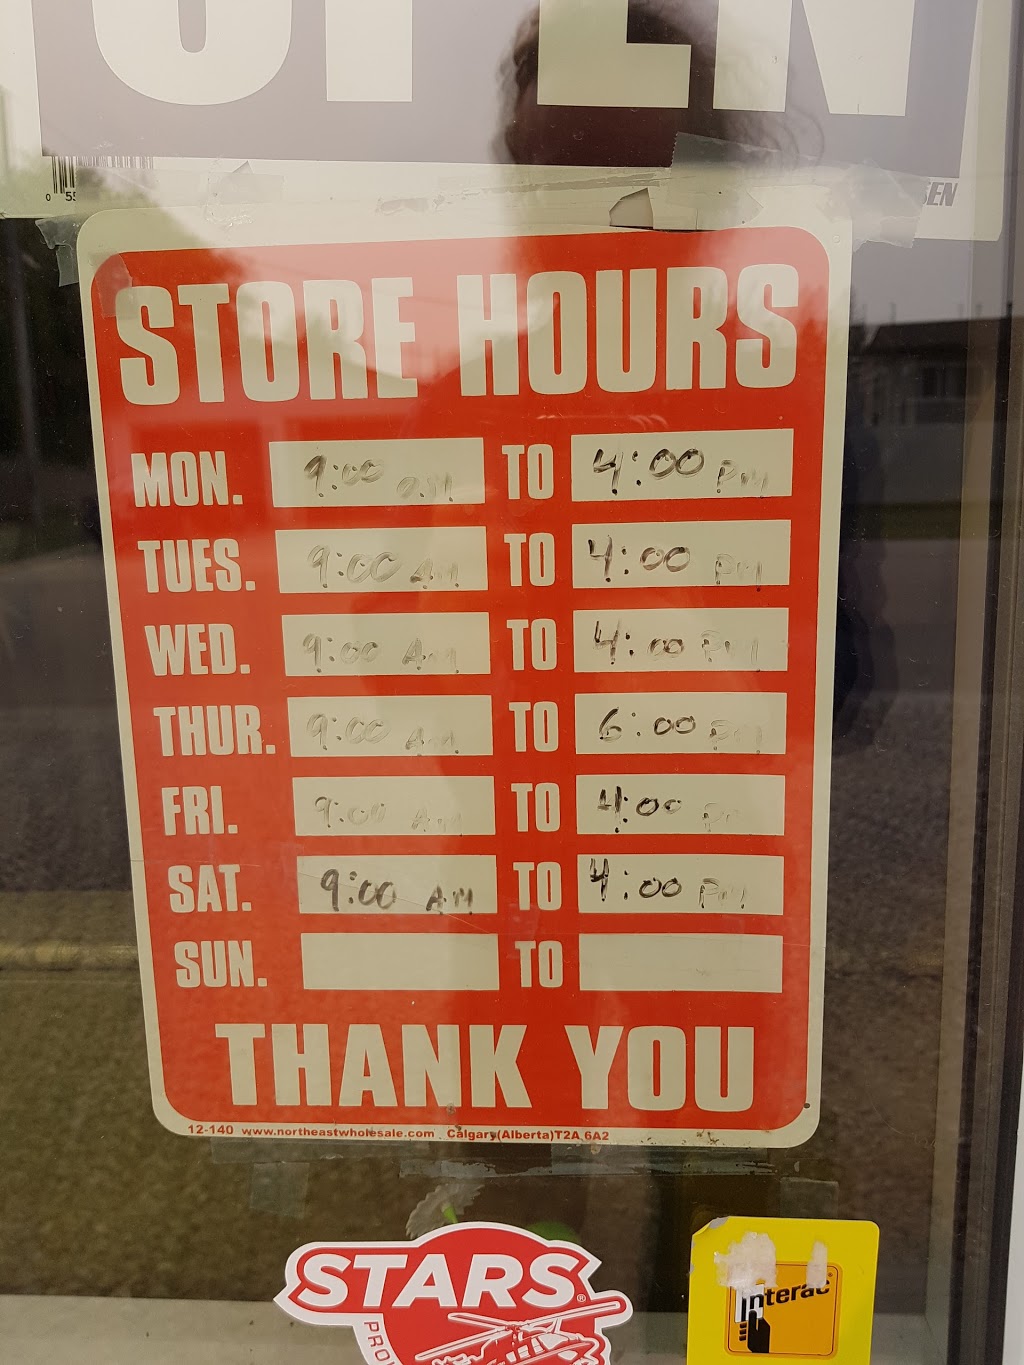 OPEN
0 55
SEN
STORE HOURS
MON. 9:00 am TO 4:00 PM
TUES. 9:00 AM TO 4:00 PM
WED. 9:00 AM TO 4:00 PM
THUR. 9:00 AM TO 6:00 PM
FRI. 9:00 AM TO 4:00 PM
SAT. 9:00 AM TO 4:00 PM
SUN. TO
THANK YOU
12-140 www.northeastwholesale.com Calgary(Alberta)T2A 6A2
STARS®
PRO
Interac®